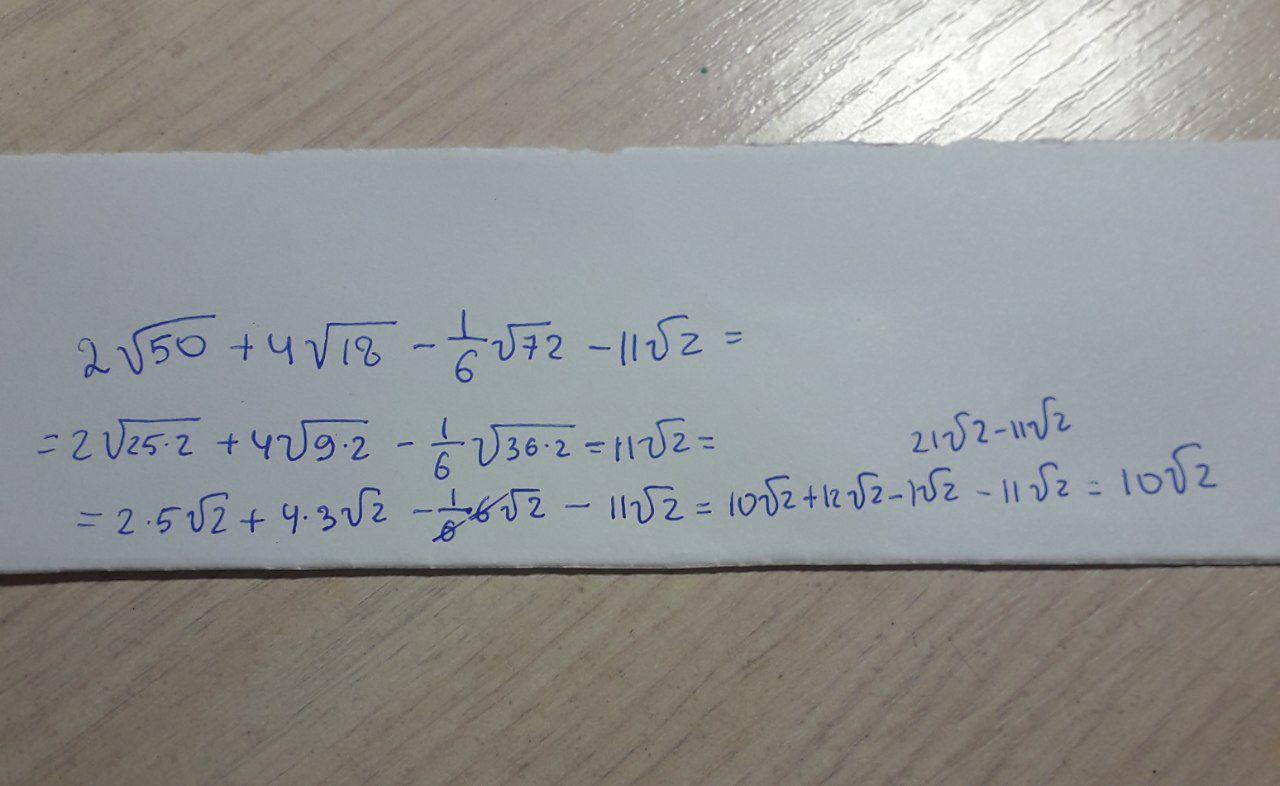 2√50 + 4√18 - 1/6 √72 - 11√2 =
= 2√25·2 + 4√9·2 - 1/6 √36·2 = 11√2 =
21√2 - 11√2
= 2·5√2 + 4·3√2 - 1/6·6√2 - 11√2 = 10√2 + 12√2 - 1√2 - 11√2 = 10√2